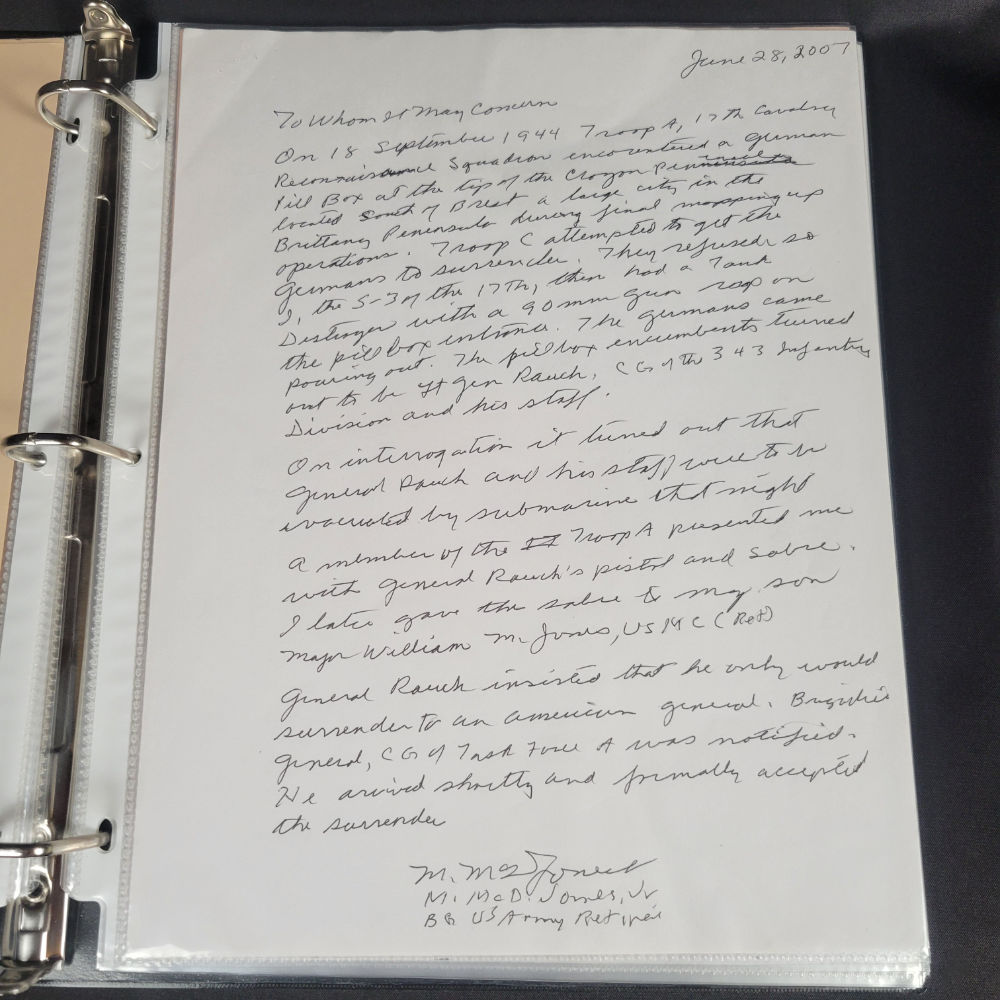 June 28, 2007
To Whom It May Concern
On 18 September 1944 Troop A, 17th Cavalry
Reconnaissance Squadron encountered a German
Pill Box at the tip of the Crozon
located South of Brest a large city in the
Brittany Peninsula during final mopping up
operations. Troop C attempted to get the
Germans to surrender. They refused so
I, the S-3 of the 17th, then had a Tank
Destroyer with a 90mm gun rap on
the pill box entrance. The Germans came
pouring out. The pill box encumbents turned
out to be Lt Gen Rauch, CG of the 343 Infantry
Division and his staff.
On interrogation it turned out that
General Rauch and his staff were to be
evacuated by submarine that night
A member of the Troop A presented me
with General Rauch's pistol and Sabre.
I later gave the sabre to my son
Major William M. Jones, USMC (Ret)
General Rauch insisted that he only would
surrender to an American general. Brigadier
General, CG of Task Force A was notified.
He arrived shortly and formally accepted
the surrender
M. McD Jones Jr
M. McD. Jones, Jr
BG US Army Retired